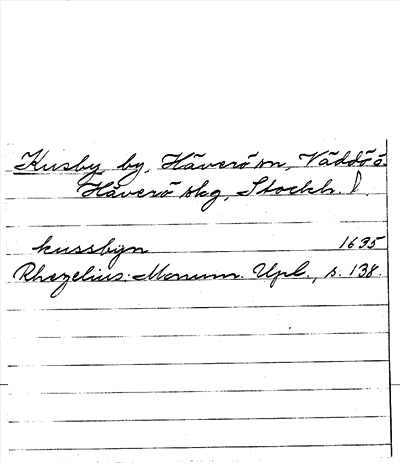 Kusby by, Häverö sn, Väddö ö.
Häverö skg, Stockh. l.
kussbyn 1635
Rhezelius: Monum. Upl., s. 138.